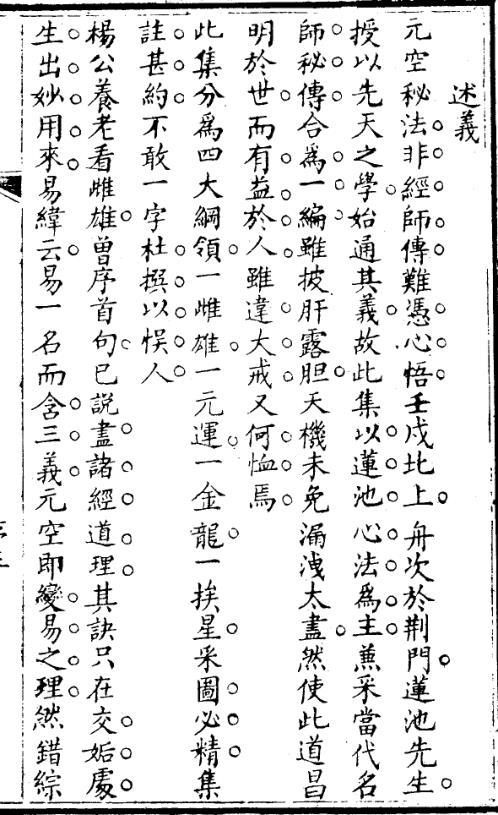 述義
元空秘法非經師傳難憑心悟壬戌北上舟次於荆門蓮池先生
授以先天之學始通其義故此集以蓮池心法爲主兼采當代名
師秘傳合爲一編雖披肝露胆天機未免漏洩太盡然使此道昌
明於世而有益於人雖違大戒又何恤焉
此集分爲四大綱領一雌雄一元運一金龍一挨星采圖必精集
註甚約不敢一字杜撰以悮人
楊公養老看雌雄曾序首句已說盡諸經道理其訣只在交姤處
生出妙用來易緯云易一名而含三義元空即變易之理然錯綜